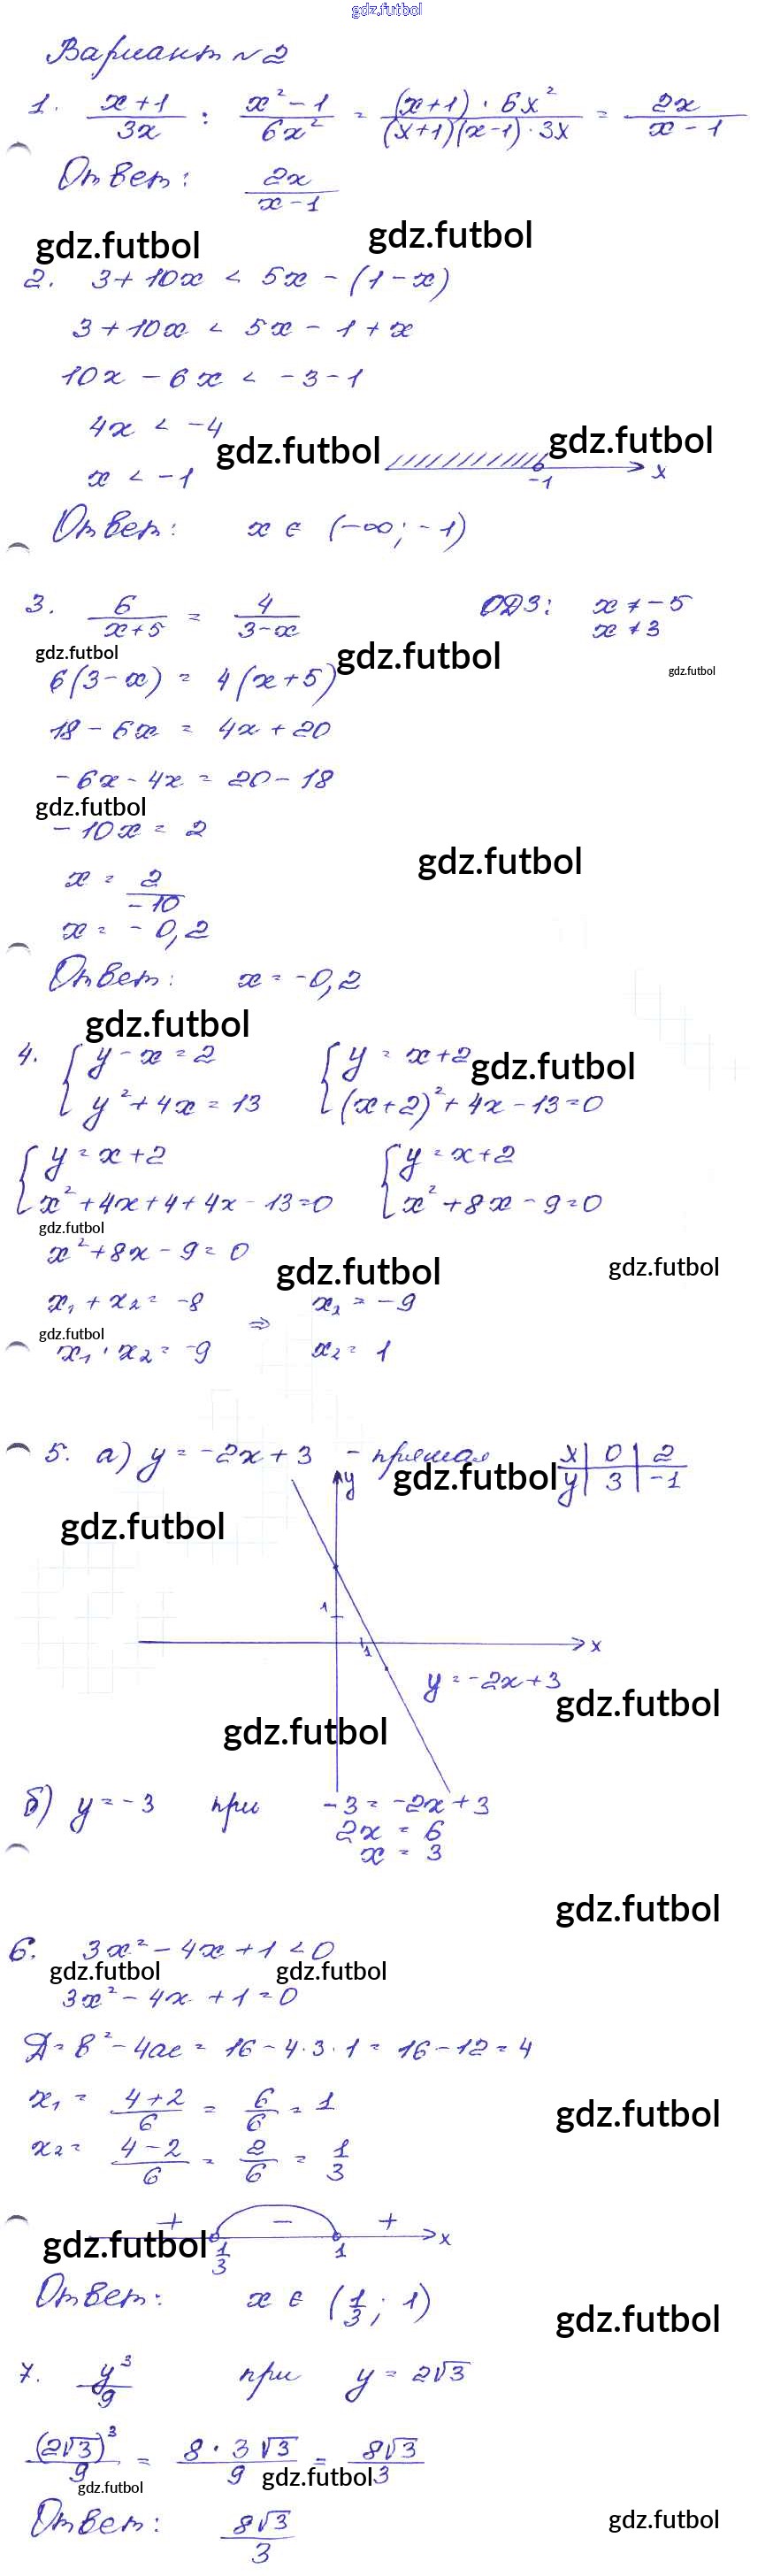 gdz.futbol
Вариант №2
1. (x+1)/(3x) : (x²-1)/(6x²) = ((x+1)·6x²)/((x+1)(x-1)·3x) = 2x/(x-1)
Ответ: 2x/(x-1)
gdz.futbol gdz.futbol
2. 3+10x < 5x-(1-x)
3+10x < 5x-1+x
10x-6x < -3-1
4x < -4
gdz.futbol gdz.futbol
x < -1 -1 x
Ответ: x ∈ (-∞; -1)
3. 6/(x+5) = 4/(3-x) ОДЗ: x ≠ -5
x ≠ 3
gdz.futbol gdz.futbol gdz.futbol
6(3-x) = 4(x+5)
18-6x = 4x+20
-6x-4x = 20-18
gdz.futbol
-10x = 2
gdz.futbol
x = 2/-10
x = -0,2
Ответ: x = -0,2
gdz.futbol
4. { y-x=2 { y = x+2 gdz.futbol
y²+4x=13 (x+2)²+4x-13=0
{ y = x+2 { y = x+2
x²+4x+4+4x-13=0 x²+8x-9=0
gdz.futbol
x²+8x-9=0
gdz.futbol gdz.futbol
x₁+x₂=-8 ⇒ x₂ = -9
gdz.futbol
x₁·x₂=-9 x₂ = 1
5. а) y = -2x+3 - прямая x | 0 | 2
y gdz.futbol y | 3 | -1
gdz.futbol
1
1 x
y = -2x+3
gdz.futbol
gdz.futbol
б) y = -3 при -3 = -2x+3
2x = 6
x = 3
gdz.futbol
6. 3x²-4x+1<0
gdz.futbol gdz.futbol
3x²-4x+1=0
Д = в²-4ас = 16-4·3·1 = 16-12 = 4
x₁ = (4+2)/6 = 6/6 = 1
gdz.futbol
x₂ = (4-2)/6 = 2/6 = 1/3
+ - +
gdz.futbol 1/3 1 x
Ответ: x ∈ (1/3; 1)
gdz.futbol
7. y³/9 при y = 2√3
(2√3)³/9 = (8·3√3)/9 = 8√3/3
gdz.futbol
gdz.futbol
Ответ: 8√3/3
gdz.futbol